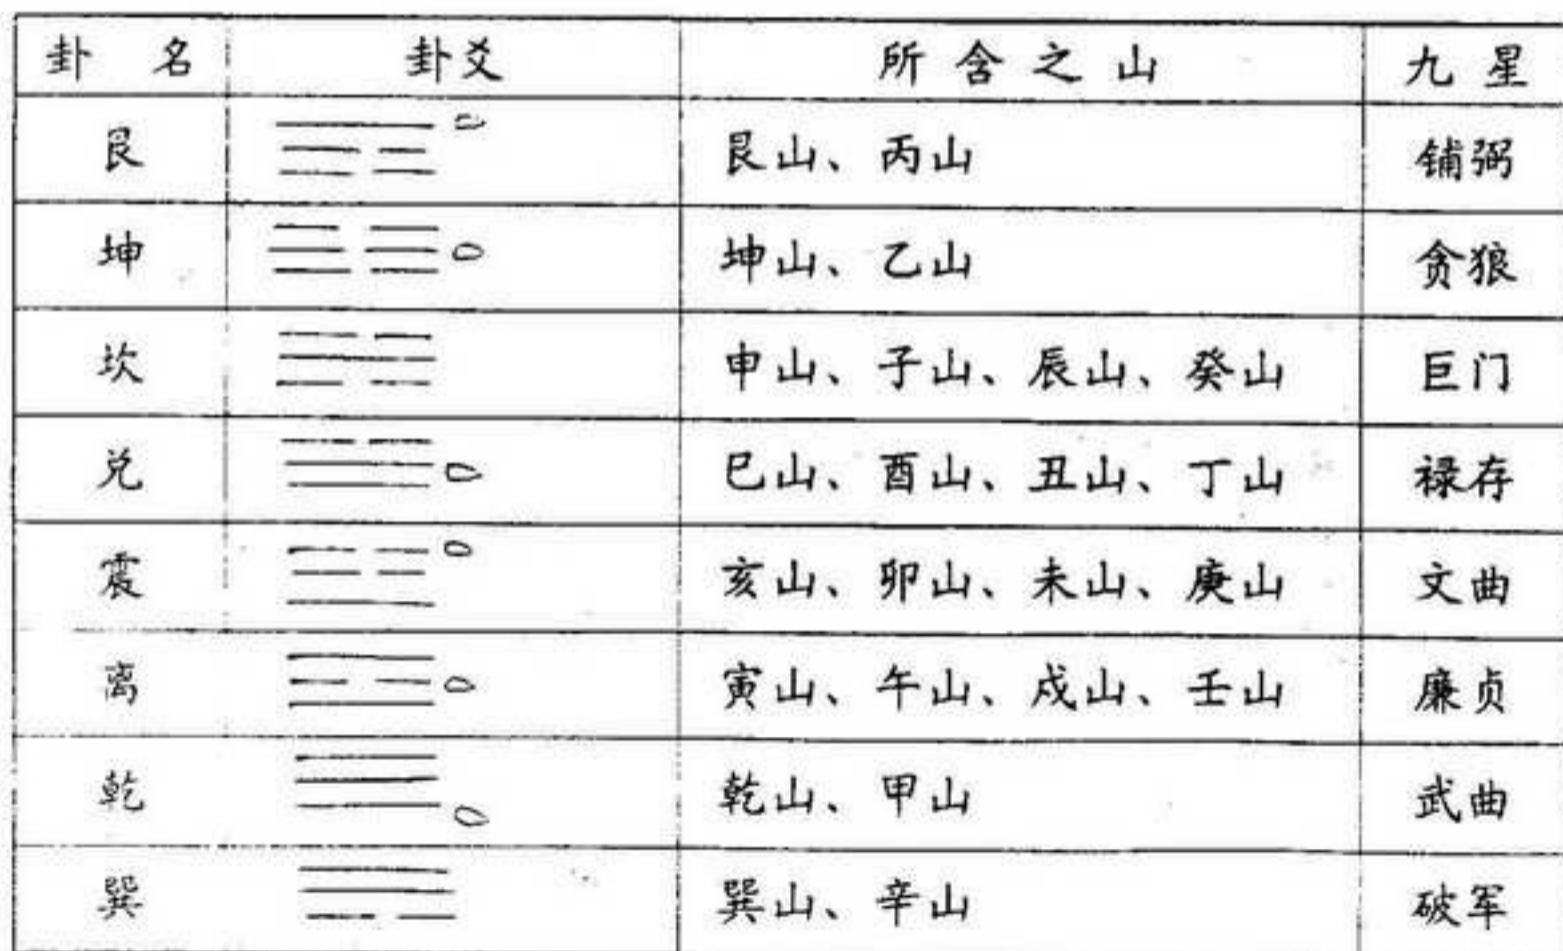 卦 名 卦爻 所含之山 九星
艮 艮山、丙山 铺弼
坤 坤山、乙山 贪狼
坎 申山、子山、辰山、癸山 巨门
兑 巳山、酉山、丑山、丁山 禄存
震 亥山、卯山、未山、庚山 文曲
离 寅山、午山、戍山、壬山 廉贞
乾 乾山、甲山 武曲
巽 巽山、辛山 破军